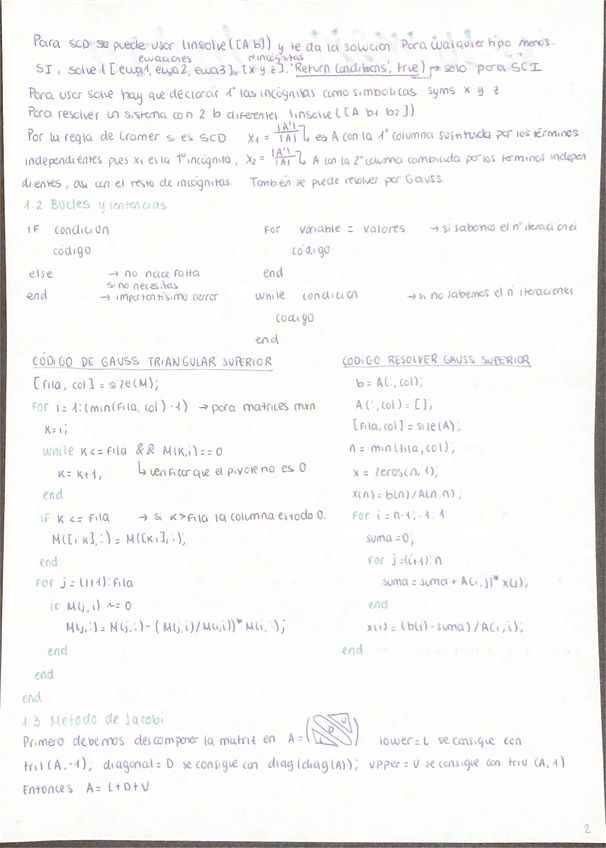 Para SCD se puede usar linsolve([A b]) y te da la solución. Para cualquier tipo menos
ecuaciones incógnitas
SI, solve([ecua1, ecua2, ecua3], [x y z], 'Return Conditions', true) → solo para SCI
Para usar solve hay que declarar 1º las incógnitas como simbólicas syms x y z
Para resolver un sistema con 2 b diferentes linsolve([A b1 b2])
Por la regla de Cramer si es SCD x1 = |A'|/|A| ↳ es A con la 1º columna sustituida por los términos
independientes pues x1 es la 1º incógnita, x2 = |A'|/|A| ↳ A con la 2º columna cambiada por los términos indepen
dientes, así con el resto de incógnitas. También se puede resolver por Gauss.
1.2 Bucles y sentencias
IF condición
código
else → no hace falta
si no necesitas
end → importantísimo cerrar
for variable = valores → si sabemos el nº iteraciones
código
end
while condición → si no sabemos el nº iteraciones
código
end
CÓDIGO DE GAUSS TRIANGULAR SUPERIOR
[fila, col] = size(M);
for i = 1:(min(fila, col) -1) → para matrices mxn
k=i;
while k<=fila && M(k,i)==0
k = k+1; ↳ verificar que el pivote no es 0
end
if k <= fila → si k>fila la columna es todo 0.
M([i k],:) = M([k i],:);
end
for j=(i+1):fila
if M(j,i) ~= 0
M(j,:) = M(j,:) - (M(j,i)/M(i,i))*M(i,:);
end
end
end
CODIGO RESOLVER GAUSS SUPERIOR
b = A(:,col);
A(:,col) = [];
[fila, col] = size(A);
n = min(fila, col);
x = zeros(n,1);
x(n) = b(n)/A(n,n);
for i = n-1:-1:1
suma=0;
for j=(i+1):n
suma = suma + A(i,j)*x(j);
end
x(i) = (b(i)-suma)/A(i,i);
end
1.3 Método de Jacobi
Primero debemos descomponer la matriz en A = (L D U) lower = L se consigue con
tril(A,-1); diagonal = D se consigue con diag(diag(A)); upper = U se consigue con triu(A,1)
Entonces A = L+D+U
2